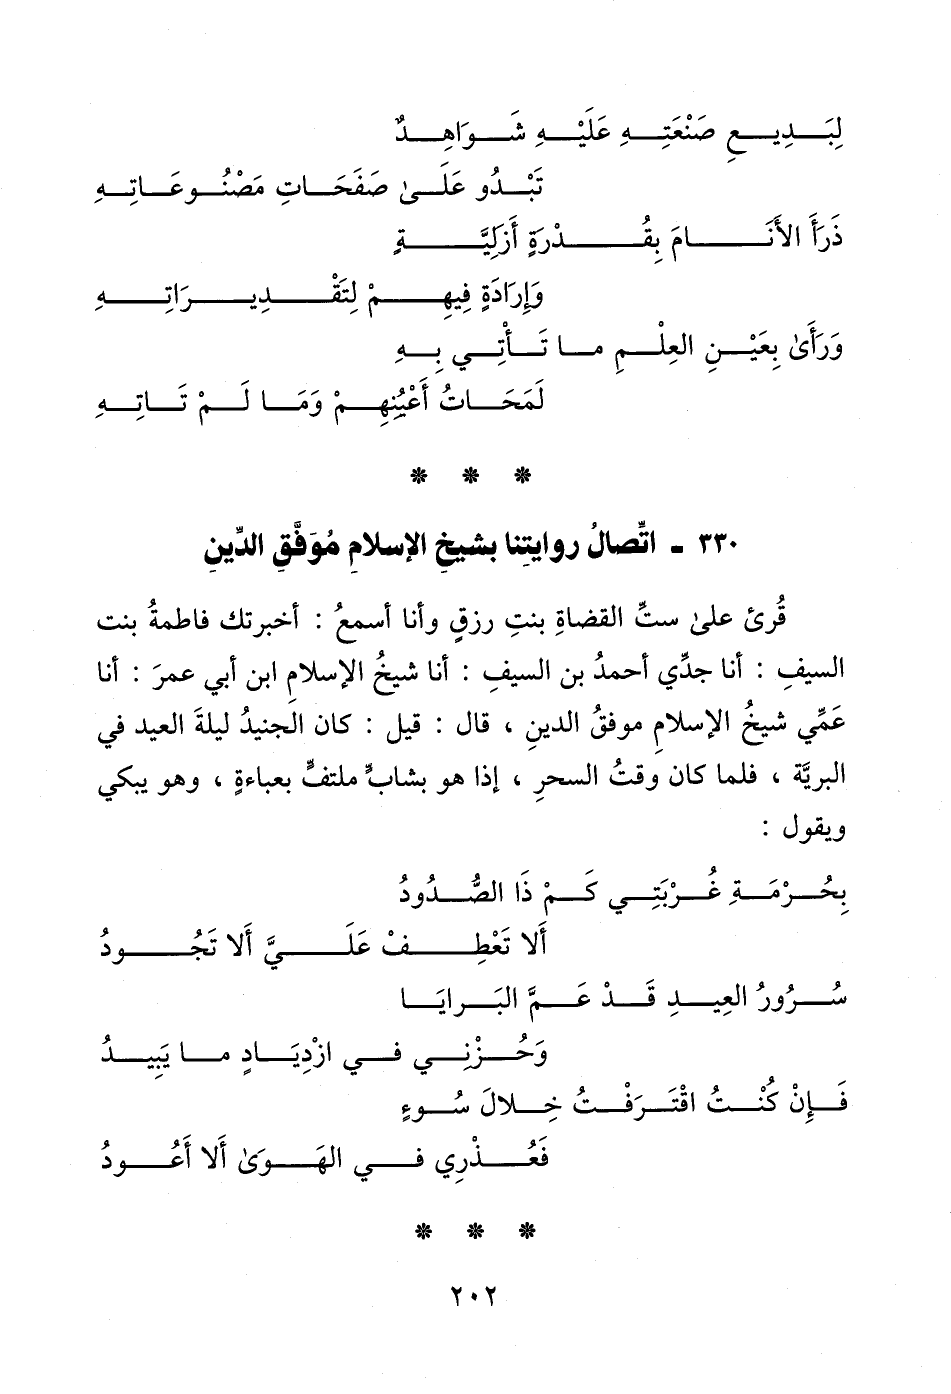 لِبَدِيعِ صَنْعَتِهِ عَلَيْهِ شَوَاهِدٌ
تَبْدُو عَلَىٰ صَفَحَاتِ مَصْنُوعَاتِهِ
ذَرَأَ الأَنَامَ بِقُدْرَةٍ أَزَلِيَّةٍ
وَإِرَادَةٍ فِيهِمْ لِتَقْدِيرَاتِهِ
وَرَأَىٰ بِعَيْنِ العِلْمِ ما تَأْتِي بِهِ
لَمَحَاتُ أَعْيُنِهِمْ وَمَا لَمْ تَاتِهِ
* * *
٣٣٠ - اتِّصالُ روايتِنا بشيخِ الإسلامِ مُوَفَّقِ الدِّينِ
قُرئ علىٰ ستِّ القضاةِ بنتِ رزقٍ وأنا أسمعُ : أخبرتك فاطمةُ بنت
السيفِ : أنا جدِّي أحمدُ بن السيفِ : أنا شيخُ الإسلامِ ابن أبي عمرَ : أنا
عَمِّي شيخُ الإسلامِ موفقُ الدينِ ، قال : قيل : كان الجنيدُ ليلةَ العيد في
البريَّة ، فلما كان وقتُ السحرِ ، إذا هو بشابٍّ ملتفٍّ بعباءةٍ ، وهو يبكي
ويقول :
بِحُرْمَةِ غُرْبَتِي كَمْ ذَا الصُّدُودُ
أَلا تَعْطِفْ عَلَيَّ أَلا تَجُودُ
سُرُورُ العِيدِ قَدْ عَمَّ البَرايَا
وَحُزْنِي في ازْدِيَادٍ ما يَبِيدُ
فَإِنْ كُنْتُ اقْتَرَفْتُ خِلالَ سُوءٍ
فَعُذْرِي في الهَوَىٰ أَلا أَعُودُ
* * *
٢٠٢